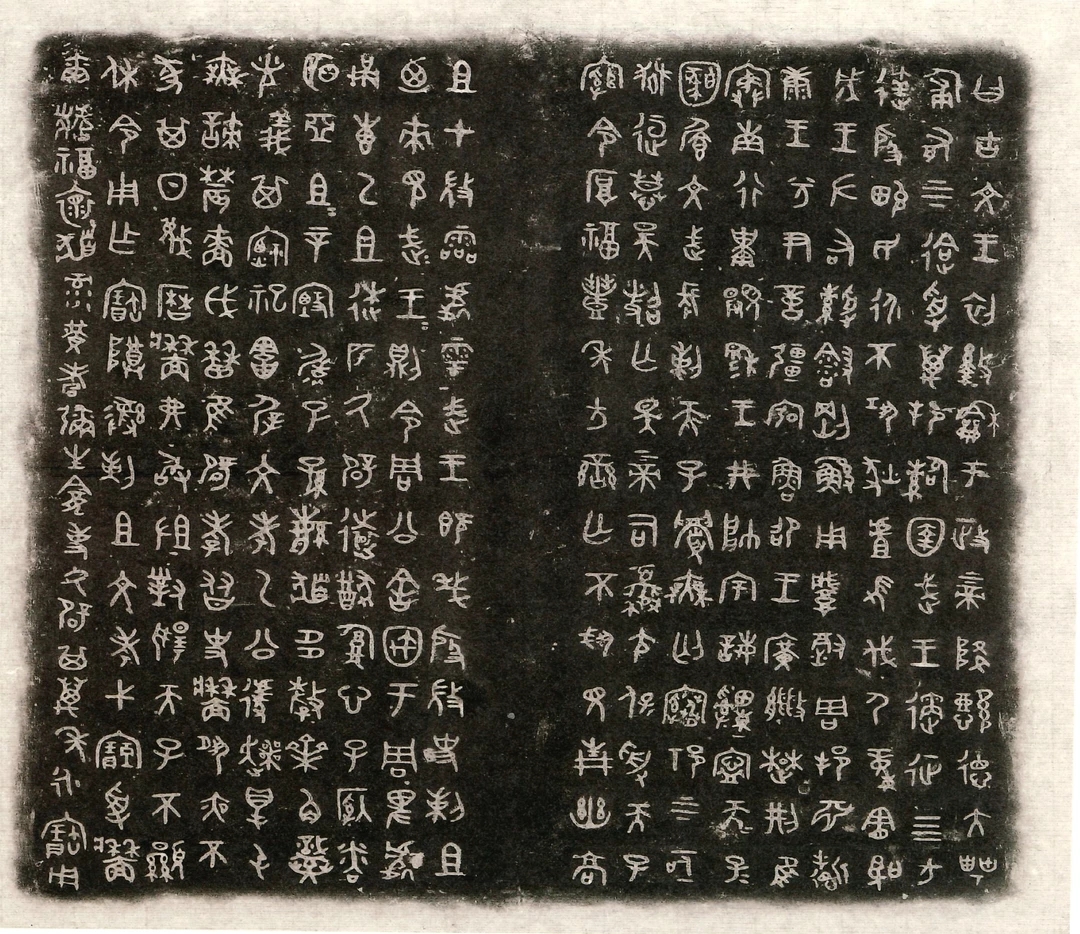 曰古文王初盭龢于政上帝降懿德大甹
匍有上下迨受萬邦圉武王遹征四方
達殷畯民永不巩狄虘伐尸童憲聖
成王左右剛鯀用肇徹周邦淵哲
康王分尹疆弘魯卲王廣楚荊隹
寏南行祗景穆王井帥宇誨申寧天子
文武長剌天子無匄祁上下
亟慕昊亡斁上帝司夒尢保受天子
綰令厚福豐年方蠻亡不見青幽高
且才微霝處雩武王既殷微史剌且
廼來見武王武王則令周公舍于周卑處
甬叀乙且逨匹氒辟遠猷腹心子
明亞且且辛毓子孫繁多釐齊角熾光
義其禋祀文考乙公遽爽屯
無諫農穡戉曆隹辟孝友史牆夙夜不
彖其日蔑曆牆弗敢沮對揚天子不顯
休令用乍寶尊彝剌且文考弋受牆
爾福褱彔黃耇彌生龕事氒辟其萬年永寶用